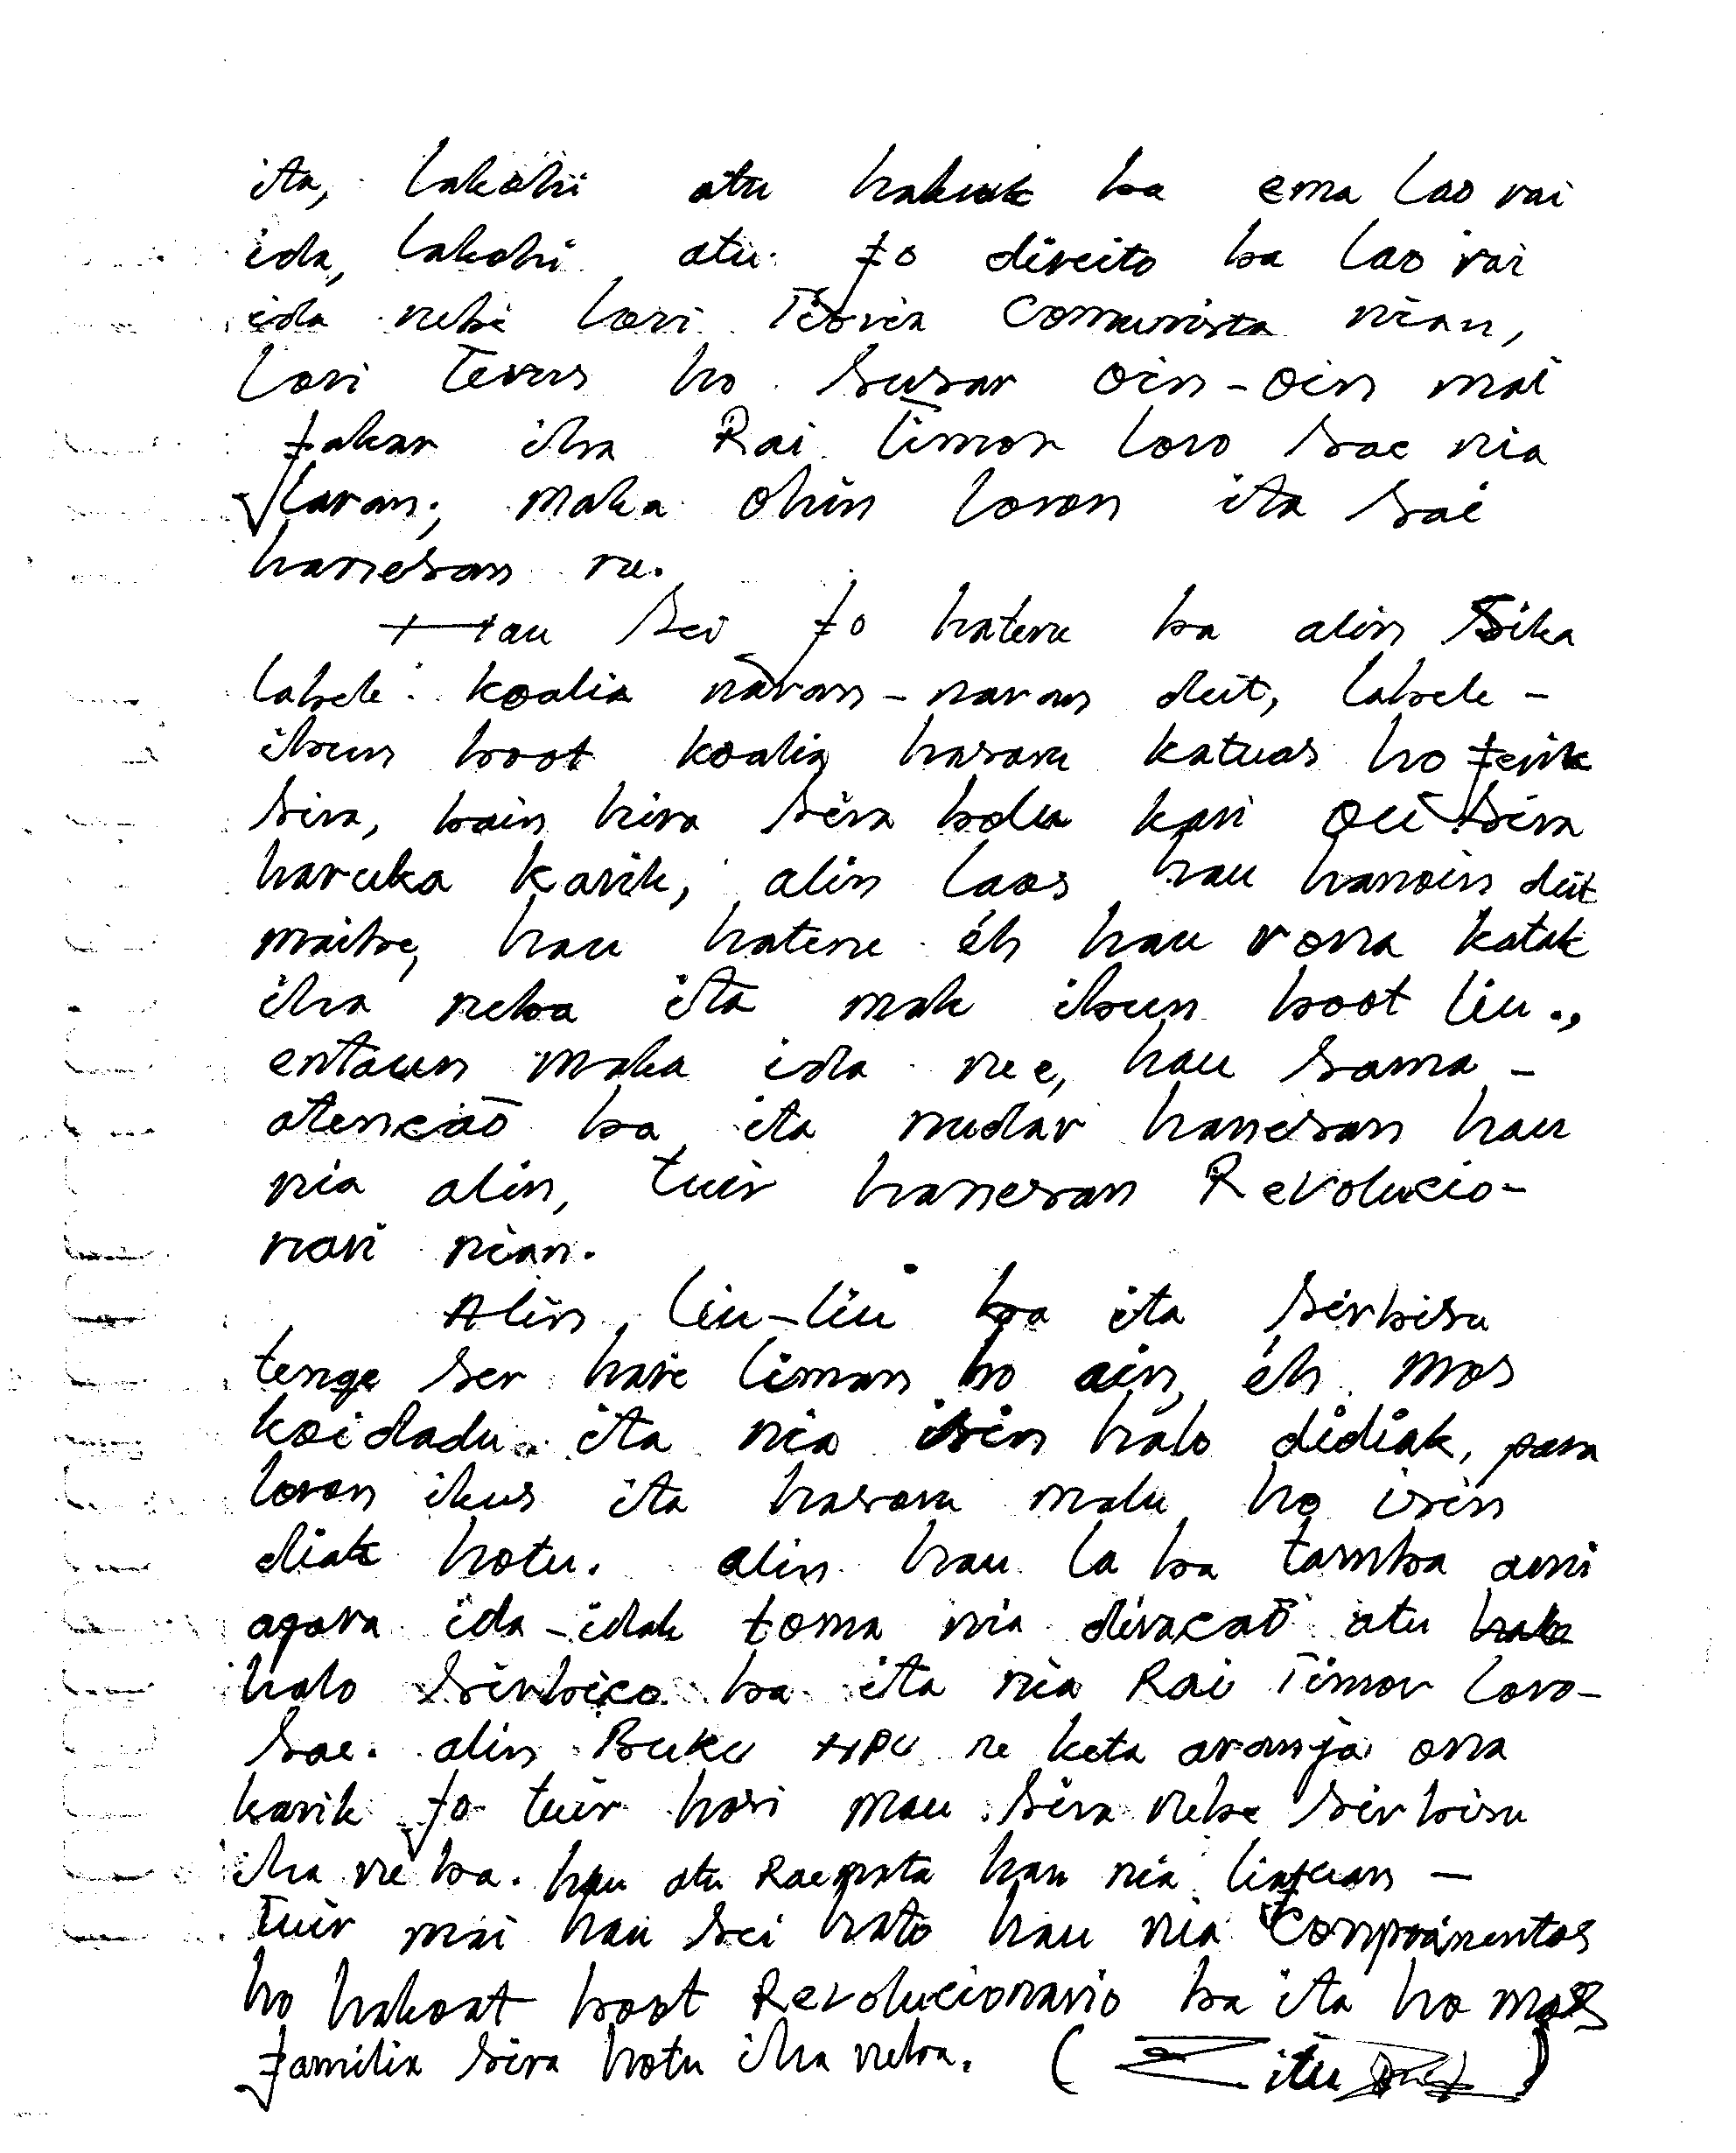 ita, lakohi atu hakruk ba ema lao rai
ida, lakohi atu fo direito ba lao rai
ida nebe lori Teoria Comunista nian,
lori Terus ho susar oin-oin mai
fakar iha Rai Timor loro sae nia
laran; maka ohin loron ita sai
hanesan ne.
Hau sei fo hatene ba alin Sika
labele koalia naran-naran deit, labele-
ibun boot koalia hasoru katuas ho ferik
sira, bain hira sira bolu kari oii sira
haruka karik, alin laos hau hanoin deit
maibe, hau hatene éh hau rona katak
iha neba ita mak ibun boot liu.,
entaun maka ida nee, hau sama-
atencaõ ba ita nudar hanesan hau
nia alin, tuir hanesan Revolucio-
nari nian.
Alin, liu-liu ba ita sirbisu
tenge ser hare liman ho ain, éh mos
koidadu ita nia isin halo didiak, para
loron ikus ita hasoru malu ho isin
diak hotu. alin hau la ba tamba ami
agora ida-idak toma nia diracaõ atu
halo sirbico ba ita nia Rai Timor loro-
sae. alin Buku ne keta aranja ona
karik fo tuir hosi mau sira nebe sirbisu
iha neba. hau atu hau nia liafuan -
Tuir mai hau sei hato hau nia
ho hakoat boot Revolucionario ba ita ho mos
familia sira hotu iha neba. (Zitu )